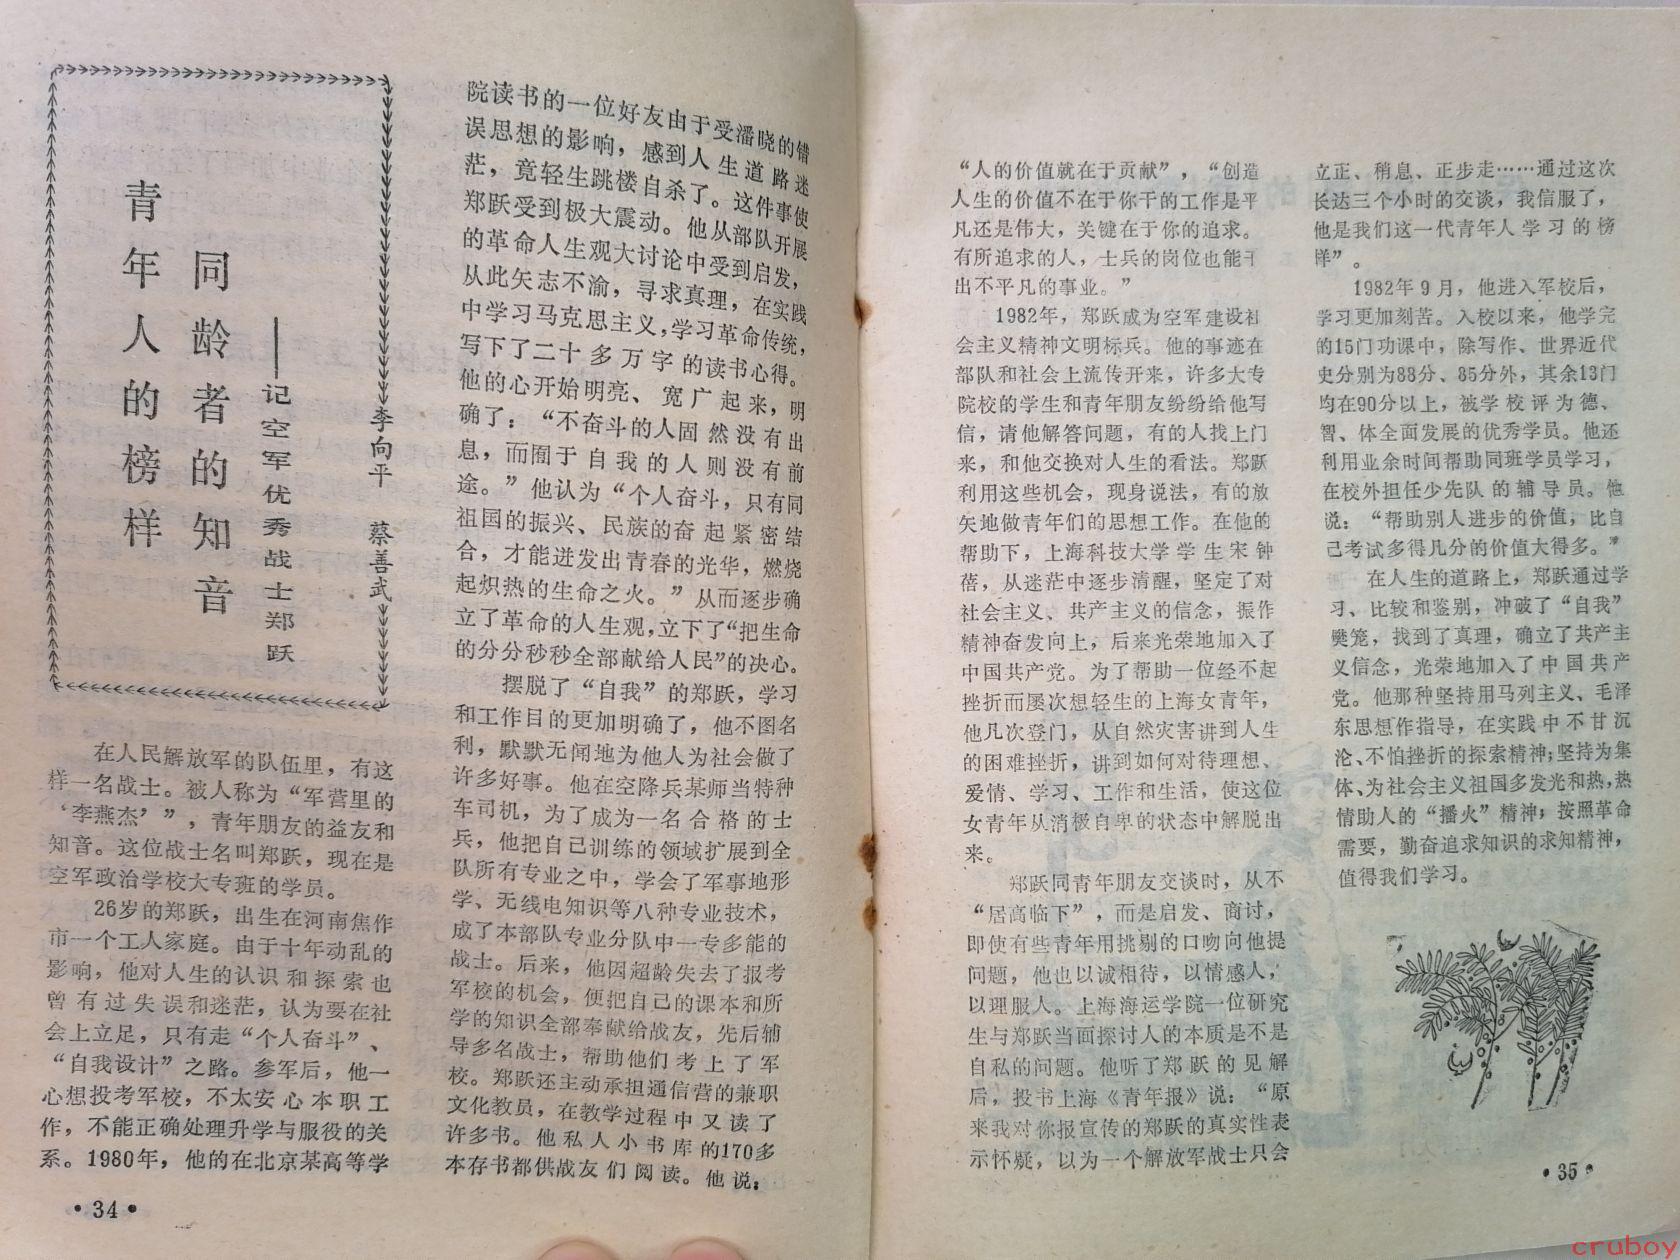 青年人的榜样
同龄者的知音
——记空军优秀战士郑跃
李向平
蔡善武
在人民解放军的队伍里，有这
样一名战士。被人称为“军营里的
‘李燕杰’”，青年朋友的益友和
知音。这位战士名叫郑跃，现在是
空军政治学校大专班的学员。
26岁的郑跃，出生在河南焦作
市一个工人家庭。由于十年动乱的
影响，他对人生的认识和探索也
曾有过失误和迷茫，认为要在社
会上立足，只有走“个人奋斗”、
“自我设计”之路。参军后，他一
心想投考军校，不太安心本职工
作，不能正确处理升学与服役的关
系。1980年，他的在北京某高等学
院读书的一位好友由于受潘晓的错
误思想的影响，感到人生道路迷
茫，竟轻生跳楼自杀了。这件事使
郑跃受到极大震动。他从部队开展
的革命人生观大讨论中受到启发，
从此矢志不渝，寻求真理，在实践
中学习马克思主义，学习革命传统，
写下了二十多万字的读书心得。
他的心开始明亮、宽广起来，明
确了：“不奋斗的人固然没有出
息，而囿于自我的人则没有前
途。”他认为“个人奋斗，只有同
祖国的振兴、民族的奋起紧密结
合，才能迸发出青春的光华，燃烧
起炽热的生命之火。”从而逐步确
立了革命的人生观，立下了“把生命
的分分秒秒全部献给人民”的决心。
摆脱了“自我”的郑跃，学习
和工作目的更加明确了，他不图名
利，默默无闻地为他人为社会做了
许多好事。他在空降兵某师当特种
车司机，为了成为一名合格的士
兵，他把自己训练的领域扩展到全
队所有专业之中，学会了军事地形
学、无线电知识等八种专业技术，
成了本部队专业分队中一专多能的
战士。后来，他因超龄失去了报考
军校的机会，便把自己的课本和所
学的知识全部奉献给战友，先后辅
导多名战士，帮助他们考上了军
校。郑跃还主动承担通信营的兼职
文化教员，在教学过程中又读了
许多书。他私人小书库的170多
本存书都供战友们阅读。他说：
·34·
“人的价值就在于贡献”，“创造
人生的价值不在于你干的工作是平
凡还是伟大，关键在于你的追求。
有所追求的人，士兵的岗位也能干
出不平凡的事业。”
1982年，郑跃成为空军建设社
会主义精神文明标兵。他的事迹在
部队和社会上流传开来，许多大专
院校的学生和青年朋友纷纷给他写
信，请他解答问题，有的人找上门
来，和他交换对人生的看法。郑跃
利用这些机会，现身说法，有的放
矢地做青年们的思想工作。在他的
帮助下，上海科技大学学生宋钟
蓓，从迷茫中逐步清醒，坚定了对
社会主义、共产主义的信念，振作
精神奋发向上，后来光荣地加入了
中国共产党。为了帮助一位经不起
挫折而屡次想轻生的上海女青年，
他几次登门，从自然灾害讲到人生
的困难挫折，讲到如何对待理想、
爱情、学习、工作和生活，使这位
女青年从消极自卑的状态中解脱出
来。
郑跃同青年朋友交谈时，从不
“居高临下”，而是启发、商讨，
即使有些青年用挑剔的口吻向他提
问题，他也以诚相待，以情感人，
以理服人。上海海运学院一位研究
生与郑跃当面探讨人的本质是不是
自私的问题。他听了郑跃的见解
后，投书上海《青年报》说：“原
来我对你报宣传的郑跃的真实性表
示怀疑，以为一个解放军战士只会
立正、稍息、正步走……通过这次
长达三个小时的交谈，我信服了，
他是我们这一代青年人学习的榜
样”。
1982年9月，他进入军校后，
学习更加刻苦。入校以来，他学完
的15门功课中，除写作、世界近代
史分别为88分、85分外，其余13门
均在90分以上，被学校评为德、
智、体全面发展的优秀学员。他还
利用业余时间帮助同班学员学习，
在校外担任少先队的辅导员。他
说：“帮助别人进步的价值，比自
己考试多得几分的价值大得多。”
在人生的道路上，郑跃通过学
习、比较和鉴别，冲破了“自我”
樊笼，找到了真理，确立了共产主
义信念，光荣地加入了中国共产
党。他那种坚持用马列主义、毛泽
东思想作指导，在实践中不甘沉
沦、不怕挫折的探索精神；坚持为集
体、为社会主义祖国多发光和热，热
情助人的“播火”精神；按照革命
需要，勤奋追求知识的求知精神，
值得我们学习。
·35·
cruboy